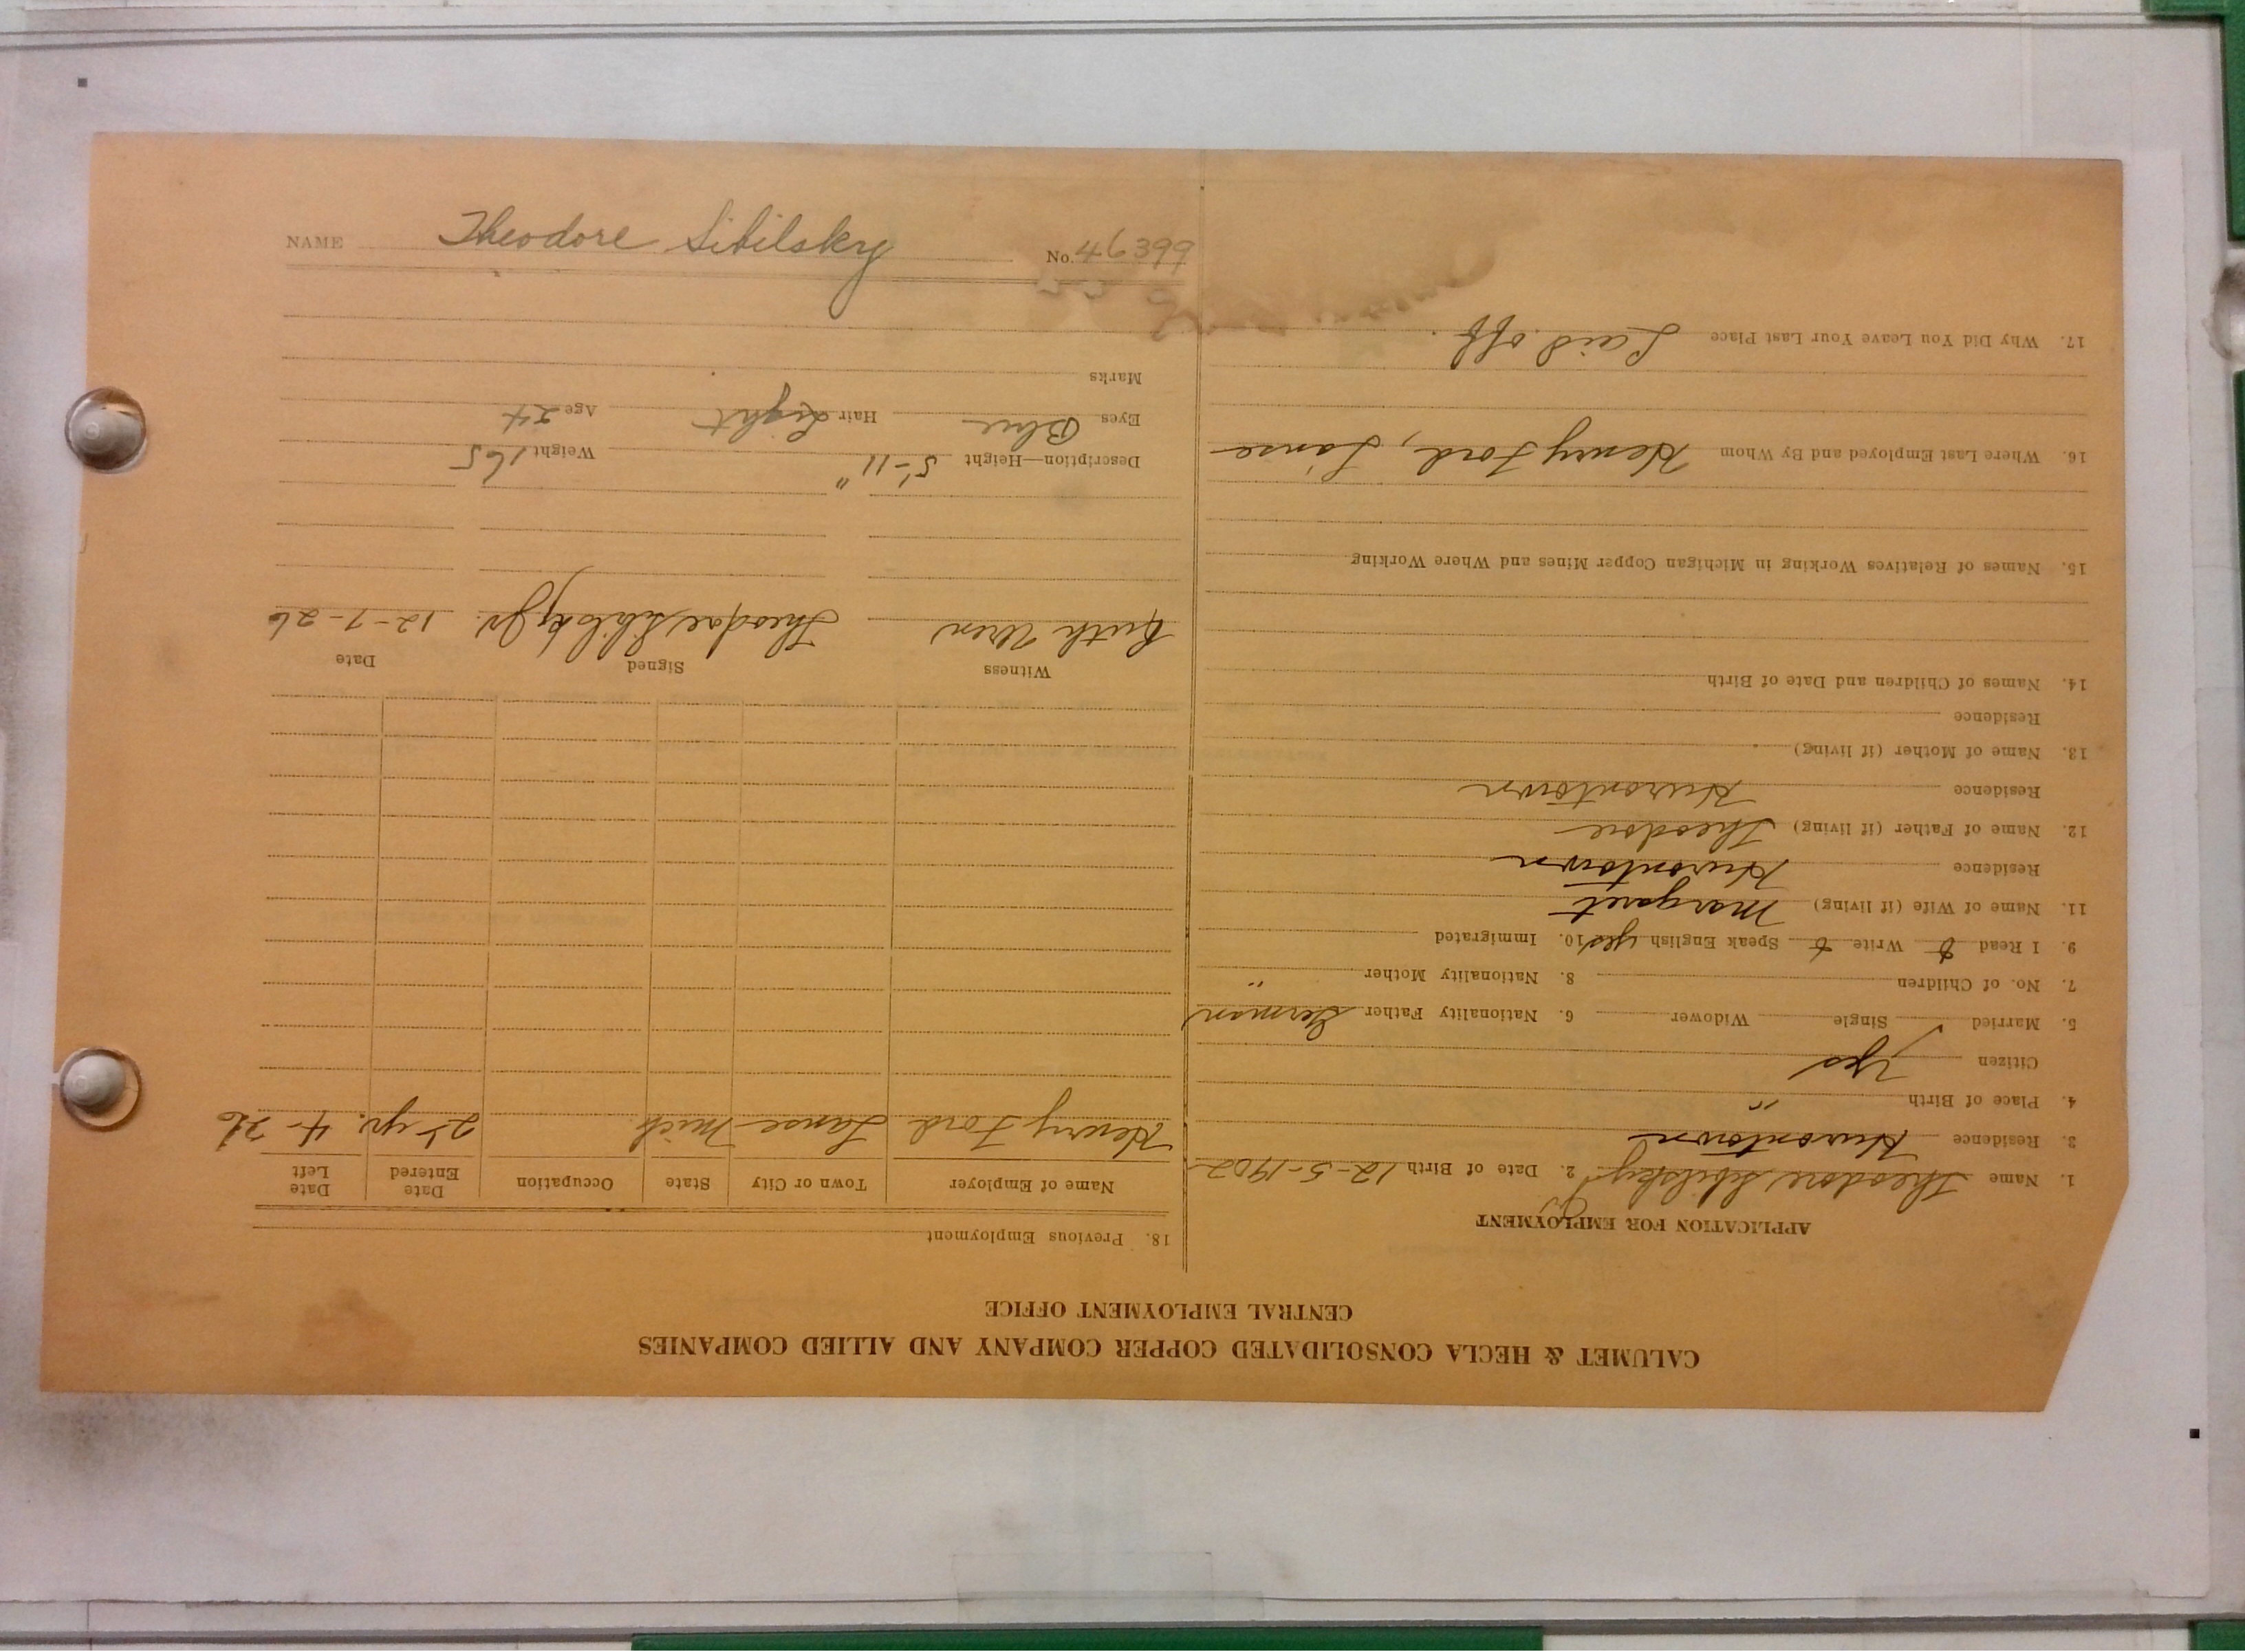 NAME Theodore Sibilsky No. 46399
CALUMET & HECLA CONSOLIDATED COPPER COMPANY AND ALLIED COMPANIES
CENTRAL EMPLOYMENT OFFICE
APPLICATION FOR EMPLOYMENT
1. Name Theodore Sibilsky Jr 2. Date of Birth 12-5-1902
3. Residence Hurontown
4. Place of Birth "
Citizen Yes
5. Married ✓ Single Widower 6. Nationality Father German
7. No. of Children 8. Nationality Mother "
9. I Read & Write & Speak English yes 10. Immigrated
11. Name of Wife (if living) Margaret
Residence Hurontown
12. Name of Father (if living) Theodore
Residence Hurontown
13. Name of Mother (if living)
Residence
14. Names of Children and Date of Birth
15. Names of Relatives Working in Michigan Copper Mines and Where Working
16. Where Last Employed and By Whom Henry Ford, L'anse
17. Why Did You Leave Your Last Place Laid off.
18. Previous Employment
Name of Employer Town or City State Occupation Date Entered Date Left
Henry Ford Lanse Mich. 2 yr. 4-26
Witness Signed Date
Ruth Uren Theodore Sibilsky Jr. 12-7-26
Description—Height 5'-11" Weight 165
Eyes Blue Hair Light Age 24
Marks